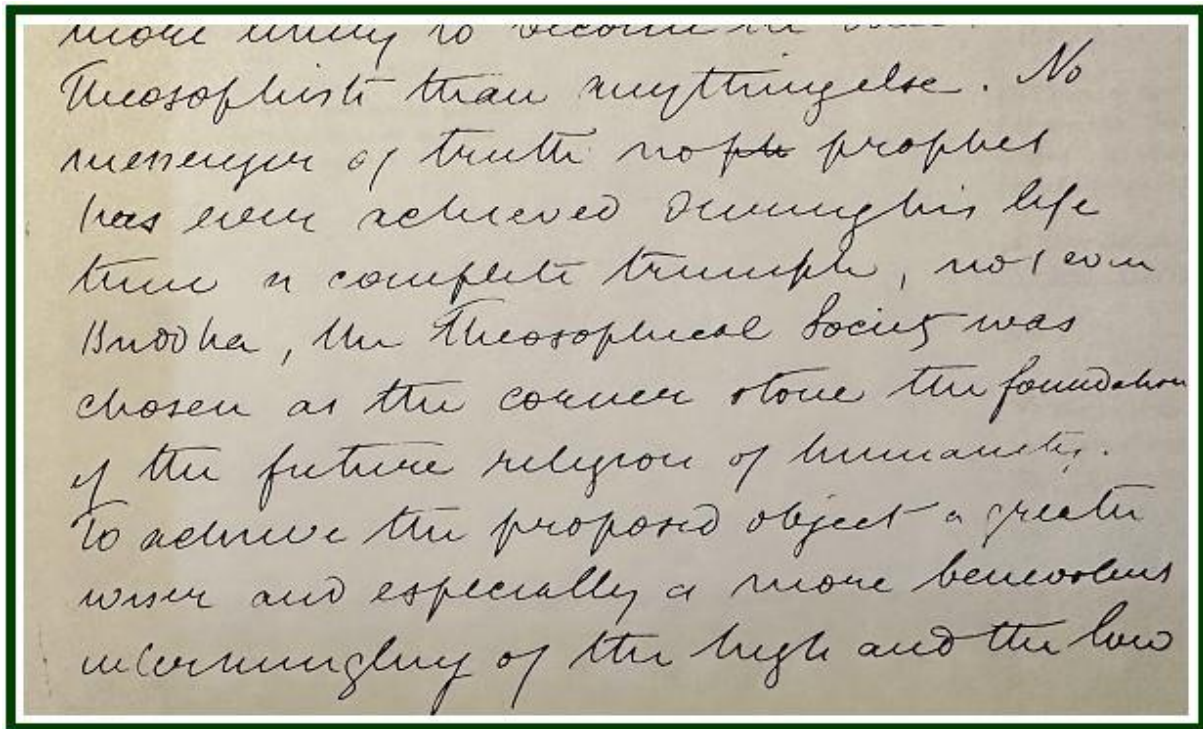 more likely to become in
Theosophists than anything else. No
messenger of truth no ph prophet
has ever achieved during his life
time a complete triumph, not even
Buddha, the Theosophical Society was
chosen as the corner stone the foundation
of the future religion of humanity.
To achieve the proposed object a greater
wiser and especially a more benevolent
intermingling of the high and the low